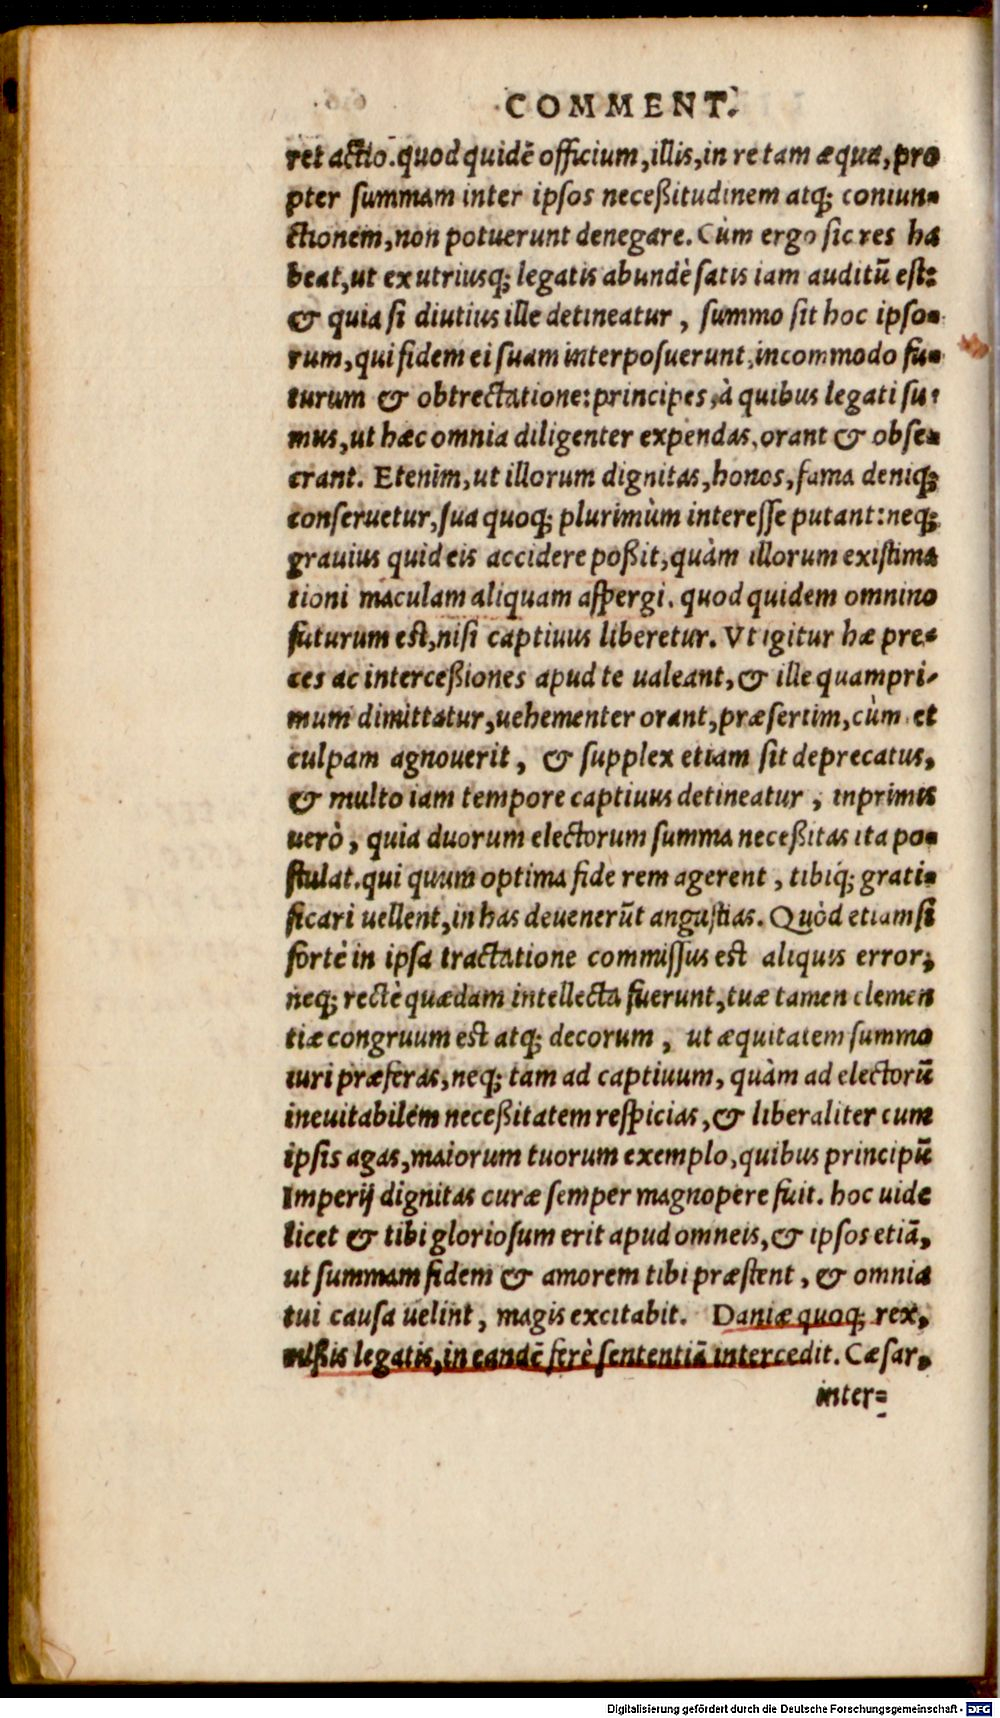 COMMENT.
ret actio. quod quidē officium, illis, in re tam æqua, pro
pter summam inter ipsos neceßitudinem atq; coniun-
ctionem, non potuerunt denegare. Cùm ergo sic res ha
beat, ut ex utriusq; legatis abundè satis iam auditū est:
& quia si diutius ille detineatur, summo sit hoc ipso-
rum, qui fidem ei suam interposuerunt, incommodo fu-
turum & obtrectatione: principes, à quibus legati su-
mus, ut hæc omnia diligenter expendas, orant & obse-
crant. Etenim, ut illorum dignitas, honos, fama deniq;
conseruetur, sua quoq; plurimùm interesse putant: neq;
grauius quid eis accidere poßit, quàm illorum existima
tioni maculam aliquam aspergi. quod quidem omnino
futurum est, nisi captiuus liberetur. Vt igitur hæ pre-
ces ac interceßiones apud te ualeant, & ille quampri-
mum dimittatur, uehementer orant, præsertim, cùm et
culpam agnouerit, & supplex etiam sit deprecatus,
& multo iam tempore captiuus detineatur, inprimis
uerò, quia duorum electorum summa neceßitas ita po-
stulat. qui quum optima fide rem agerent, tibiq; grati-
ficari uellent, in has deuenerūt angustias. Quòd etiam si
fortè in ipsa tractatione commissus est aliquis error,
neq; rectè quædam intellecta fuerunt, tuæ tamen clemen
tiæ congruum est atq; decorum, ut æquitatem summo
iuri præferas, neq; tam ad captiuum, quàm ad electorū
ineuitabilem neceßitatem respicias, & liberaliter cum
ipsis agas, maiorum tuorum exemplo, quibus principū
Imperij dignitas curæ semper magnopere fuit. hoc uide
licet & tibi gloriosum erit apud omneis, & ipsos etiā,
ut summam fidem & amorem tibi præstent, & omnia
tui causa uelint, magis excitabit. Daniæ quoq; rex,
mißis legatis, in eandē ferè sententiā intercedit. Cæsar,
inter-
Digitalisierung gefördert durch die Deutsche Forschungsgemeinschaft - DFG